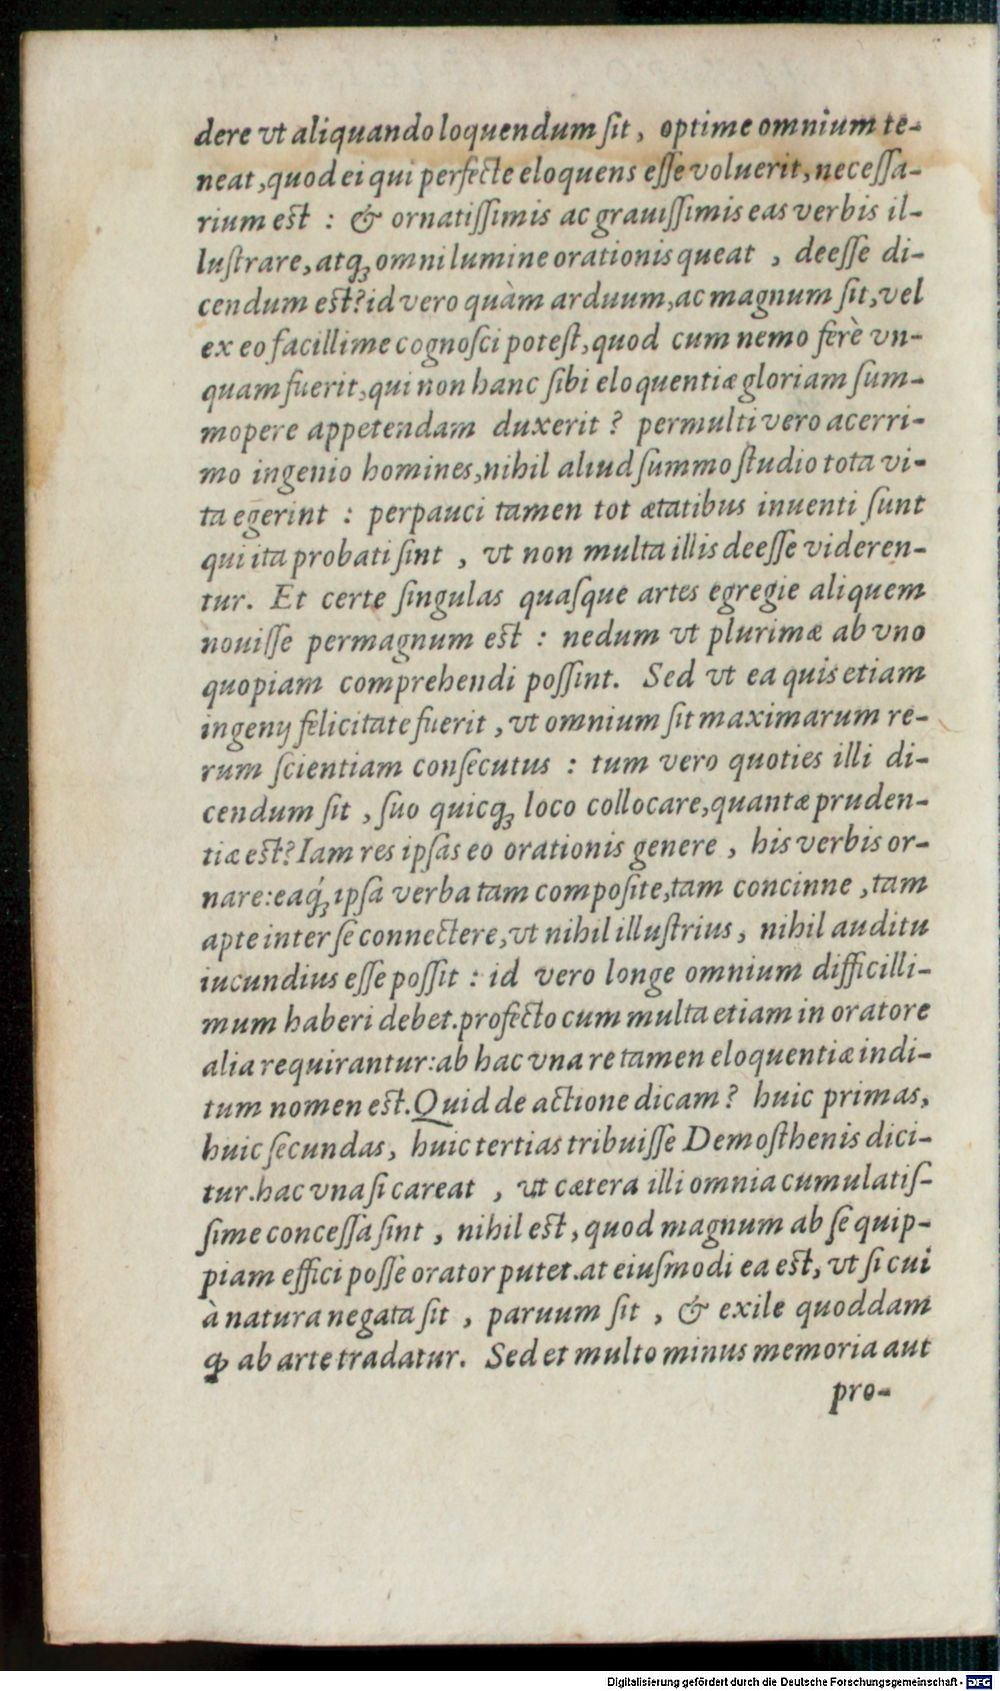 dere vt aliquando loquendum ſit, optime omnium te-
neat, quod ei qui perfecte eloquens eſſe voluerit, neceſſa-
rium est : & ornatiſſimis ac grauiſſimis eas verbis il-
luſtrare, atq́ꝫ omni lumine orationis queat , deeſſe di-
cendum est? id vero quàm arduum, ac magnum ſit, vel
ex eo facillime cognoſci poteſt, quod cum nemo ferè vn-
quam fuerit, qui non hanc ſibi eloquentiæ gloriam ſum-
mopere appetendam duxerit ? permulti vero acerri-
mo ingenio homines, nihil aliud ſummo ſtudio tota vi-
ta egerint : perpauci tamen tot ætatibus inuenti ſunt
qui ita probati ſint , vt non multa illis deeſſe videren-
tur. Et certe ſingulas quaſque artes egregie aliquem
nouiſſe permagnum est : nedum vt plurimæ ab vno
quopiam comprehendi poſſint. Sed vt ea quis etiam
ingenij felicitate fuerit , vt omnium ſit maximarum re-
rum ſcientiam conſecutus : tum vero quoties illi di-
cendum ſit , ſuo quicqꝫ loco collocare, quantæ pruden-
tiæ est? Iam res ipſas eo orationis genere , his verbis or-
nare: eaq́ꝫ ipſa verba tam compoſite, tam concinne , tam
apte inter ſe connectere, vt nihil illuſtrius, nihil auditu
iucundius eſſe poſſit : id vero longe omnium difficilli-
mum haberi debet. profecto cum multa etiam in oratore
alia requirantur: ab hac vna re tamen eloquentiæ indi-
tum nomen est. Quid de actione dicam ? huic primas,
huic ſecundas, huic tertias tribuiſſe Demoſthenis dici-
tur. hac vna ſi careat , ut cætera illi omnia cumulatiſ-
ſime conceſſa ſint , nihil est, quod magnum ab ſe quip-
piam effici poſſe orator putet. at eiuſmodi ea est, vt ſi cui
à natura negata ſit , paruum ſit , & exile quoddam
ꝙ ab arte tradatur. Sed et multo minus memoria aut
pro-
Digitalisierung gefördert durch die Deutsche Forschungsgemeinschaft - DFG